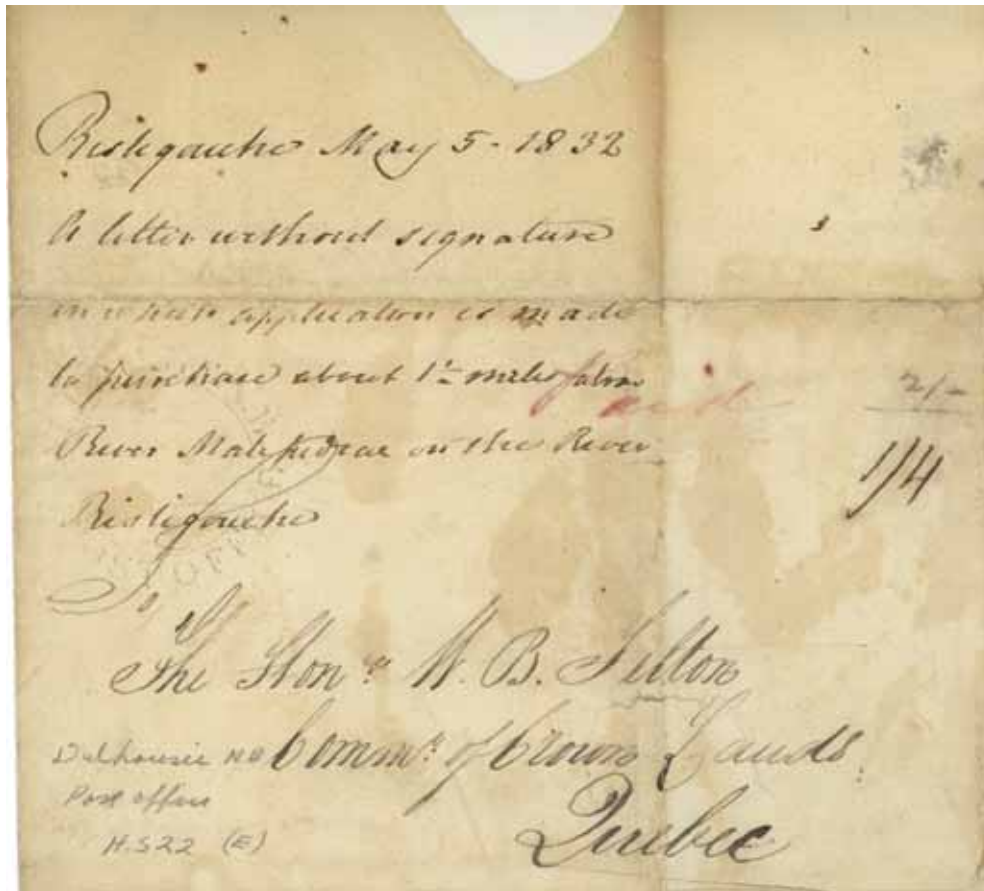 Ristigouche May 5 - 1832
A letter without signature
in which application is made
to purchase about 1½ miles
River Matapediac on the River
Ristigouche
Paid
2/-
1/4
To
The Honble W. B. Felton
Commr of Crown Lands
Quebec
Dalhousie NB
Post office
H.S22 (E)